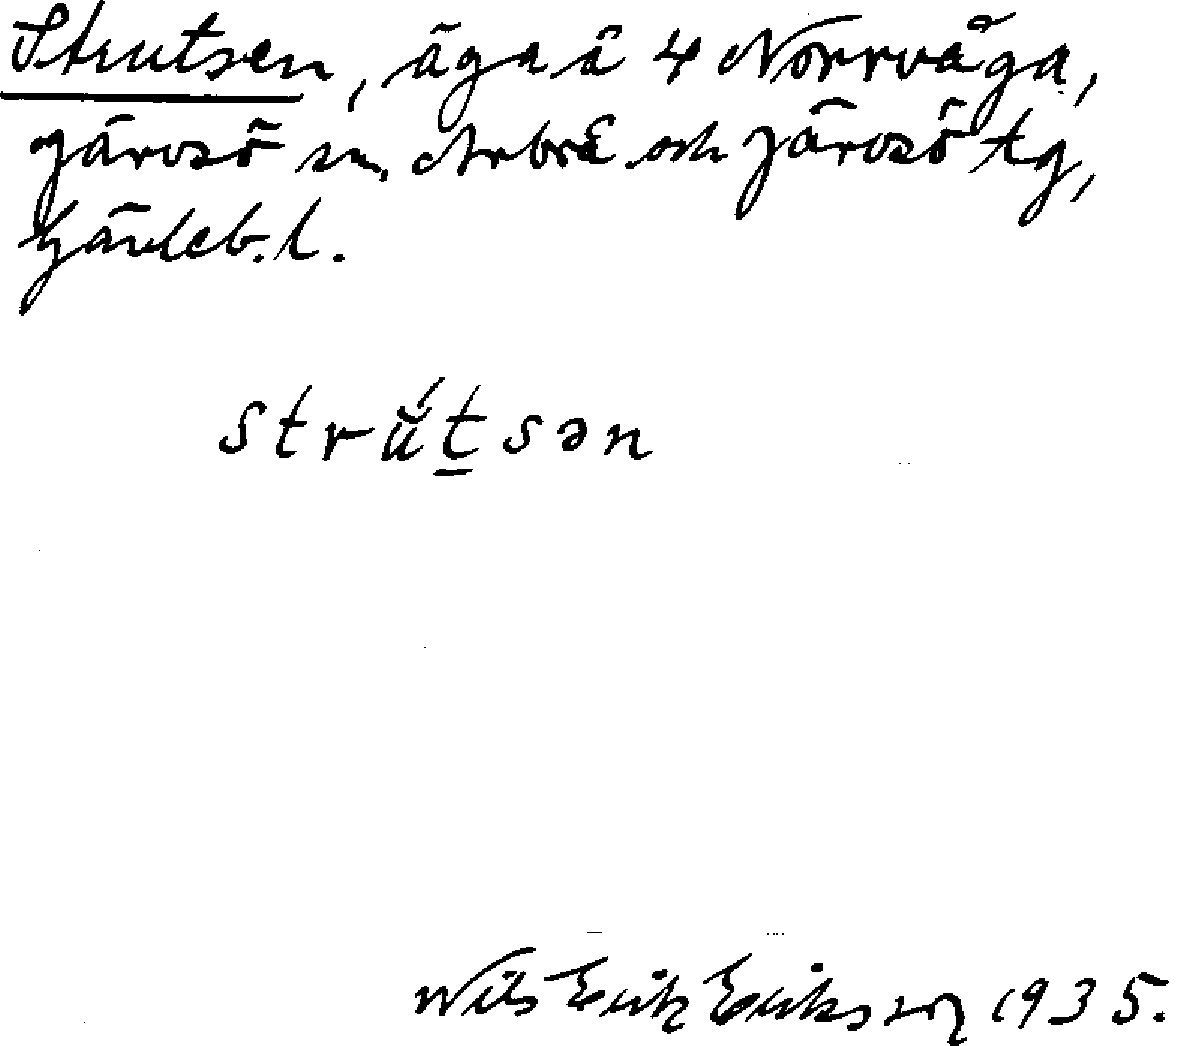 Strutsen, äga å 4 Norrvåga,
Järvsö sn, Arbrå och Järvsö tg,
Gävleb. l.
strŭ́t̲sən
Nils Erik Eriksson 1935.